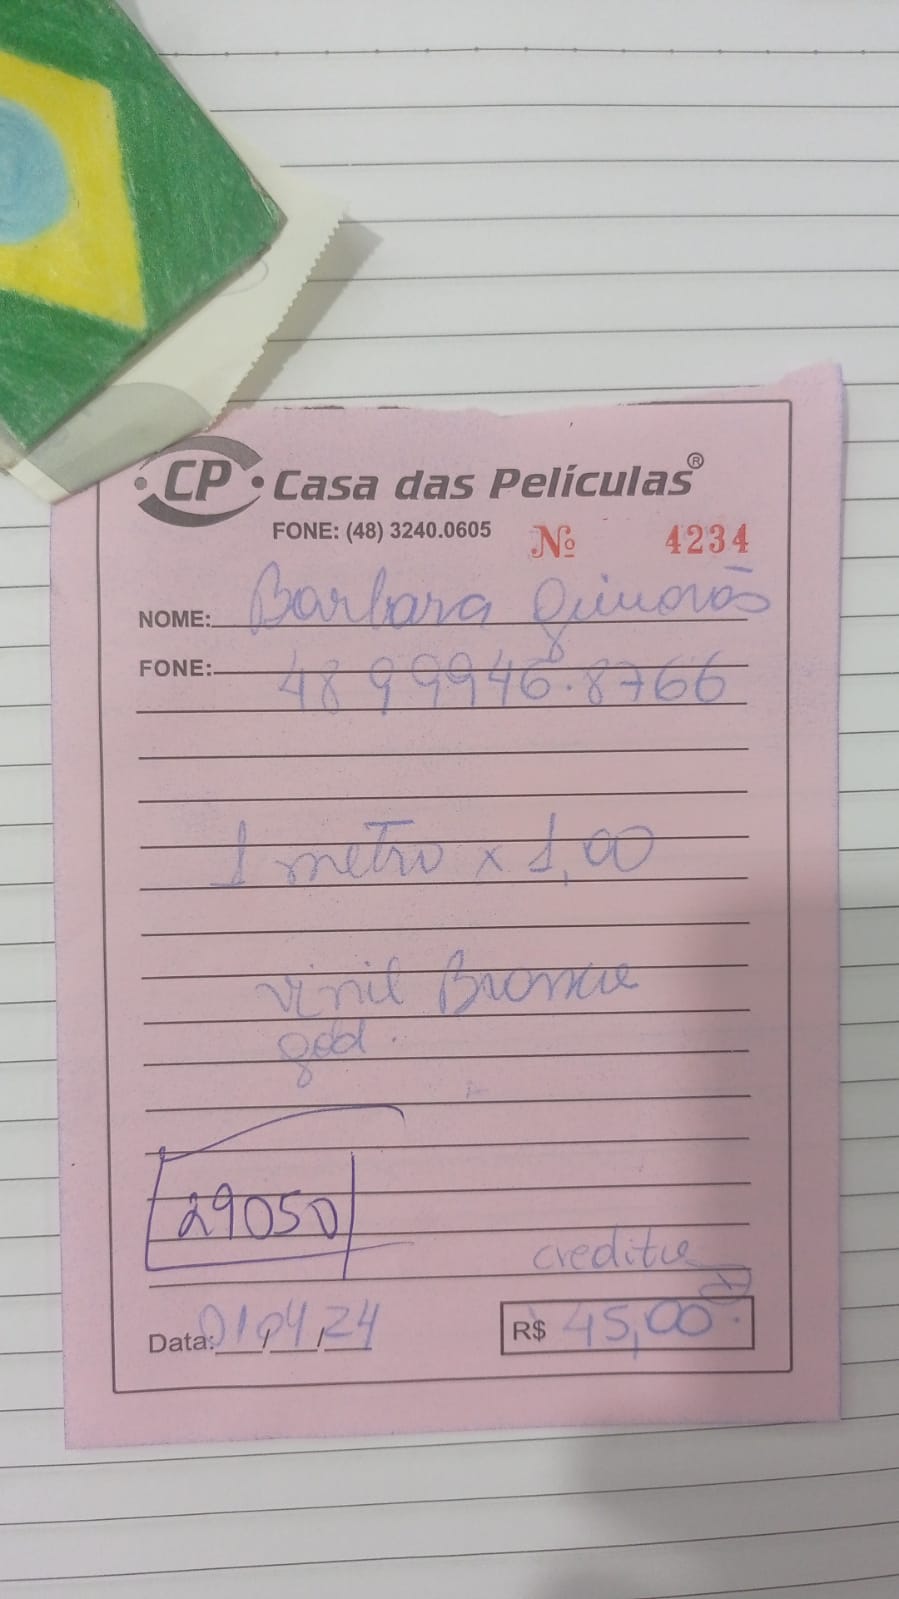 CP Casa das Películas®
FONE: (48) 3240.0605 Nº 4234
NOME: Barbara
FONE: 48 99946.8766
1 metro x 1,00
vinil
gold.
29050
Data: 01/04/24 R$ 45,00